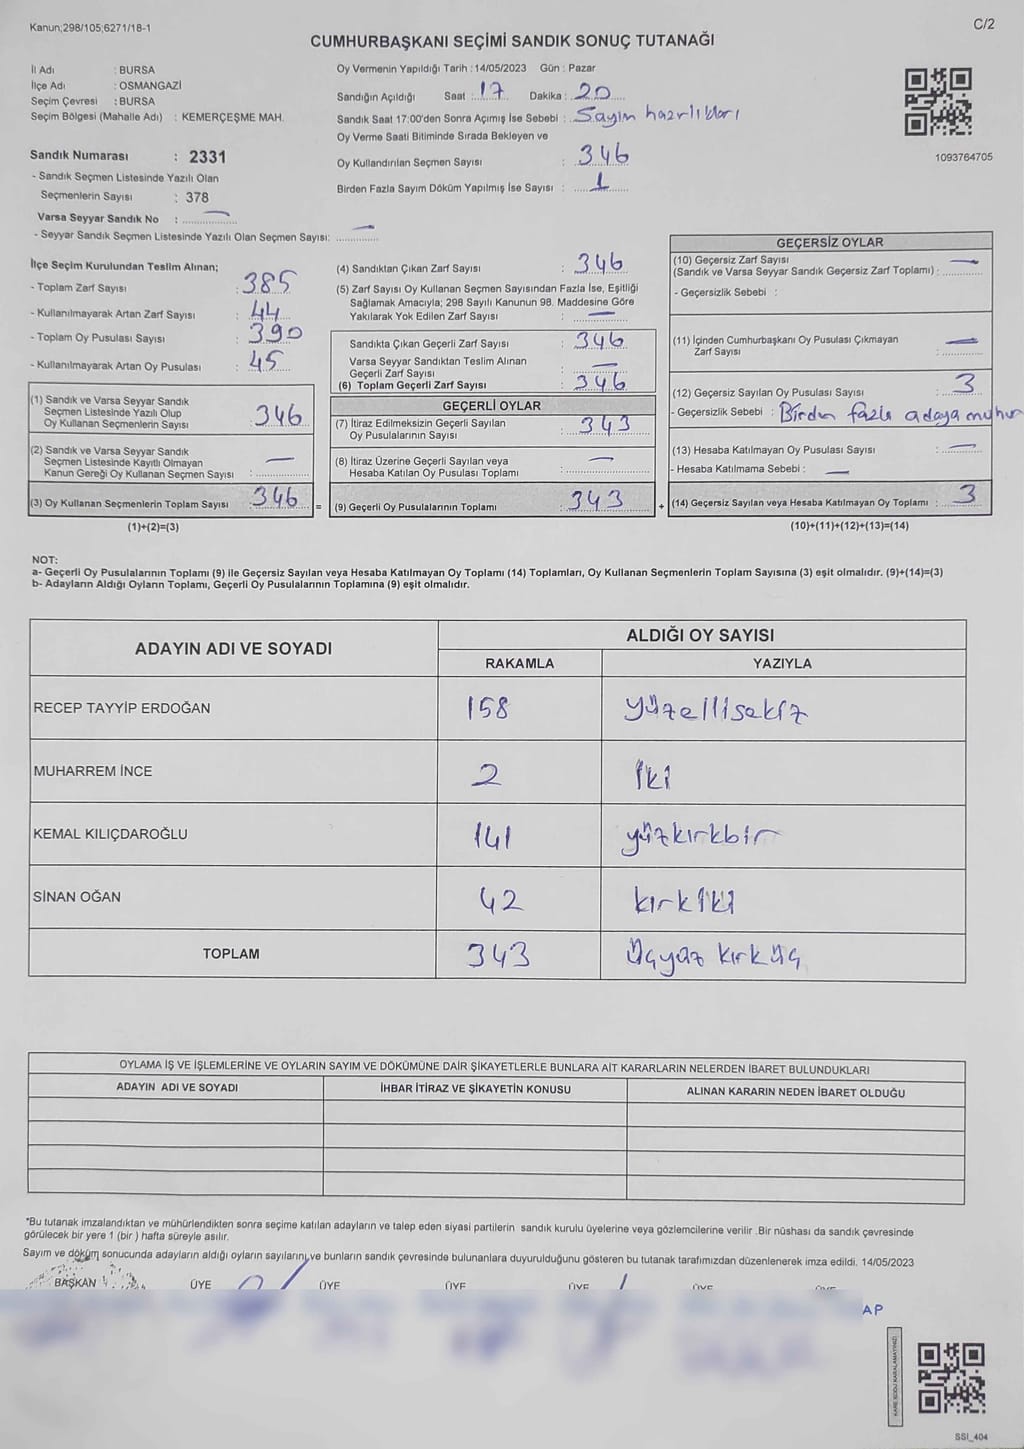 Kanun;298/105;6271/18-1
C/2
CUMHURBAŞKANI SEÇİMİ SANDIK SONUÇ TUTANAĞI
İl Adı : BURSA
İlçe Adı : OSMANGAZİ
Seçim Çevresi : BURSA
Seçim Bölgesi (Mahalle Adı) : KEMERÇEŞME MAH.
Sandık Numarası : 2331
- Sandık Seçmen Listesinde Yazılı Olan
Seçmenlerin Sayısı : 378
Varsa Seyyar Sandık No : —
- Seyyar Sandık Seçmen Listesinde Yazılı Olan Seçmen Sayısı: —
Oy Vermenin Yapıldığı Tarih : 14/05/2023 Gün : Pazar
Sandığın Açıldığı Saat : 17 Dakika : 20
Sandık Saat 17:00'den Sonra Açımış İse Sebebi : Sayım hazırlıkları
Oy Verme Saati Bitiminde Sırada Bekleyen ve
Oy Kullandırılan Seçmen Sayısı : 346
Birden Fazla Sayım Döküm Yapılmış İse Sayısı : 1
1093764705
İlçe Seçim Kurulundan Teslim Alınan;
- Toplam Zarf Sayısı : 385
- Kullanılmayarak Artan Zarf Sayısı : 44
- Toplam Oy Pusulası Sayısı : 390
- Kullanılmayarak Artan Oy Pusulası : 45
(1) Sandık ve Varsa Seyyar Sandık
Seçmen Listesinde Yazılı Olup
Oy Kullanan Seçmenlerin Sayısı : 346
(2) Sandık ve Varsa Seyyar Sandık
Seçmen Listesinde Kayıtlı Olmayan
Kanun Gereği Oy Kullanan Seçmen Sayısı : —
(3) Oy Kullanan Seçmenlerin Toplam Sayısı : 346 =
(1)+(2)=(3)
(4) Sandıktan Çıkan Zarf Sayısı : 346
(5) Zarf Sayısı Oy Kullanan Seçmen Sayısından Fazla İse, Eşitliği
Sağlamak Amacıyla; 298 Sayılı Kanunun 98. Maddesine Göre
Yakılarak Yok Edilen Zarf Sayısı : —
Sandıkta Çıkan Geçerli Zarf Sayısı : 346
Varsa Seyyar Sandıktan Teslim Alınan
Geçerli Zarf Sayısı : —
(6) Toplam Geçerli Zarf Sayısı : 346
GEÇERLİ OYLAR
(7) İtiraz Edilmeksizin Geçerli Sayılan
Oy Pusulalarının Sayısı : 343
(8) İtiraz Üzerine Geçerli Sayılan veya
Hesaba Katılan Oy Pusulası Toplamı : —
(9) Geçerli Oy Pusulalarının Toplamı : 343 +
GEÇERSİZ OYLAR
(10) Geçersiz Zarf Sayısı
(Sandık ve Varsa Seyyar Sandık Geçersiz Zarf Toplamı) : —
- Geçersizlik Sebebi :
(11) İçinden Cumhurbaşkanı Oy Pusulası Çıkmayan
Zarf Sayısı : —
(12) Geçersiz Sayılan Oy Pusulası Sayısı : 3
- Geçersizlik Sebebi : Birden fazla adaya muhur
(13) Hesaba Katılmayan Oy Pusulası Sayısı : —
- Hesaba Katılmama Sebebi : —
(14) Geçersiz Sayılan veya Hesaba Katılmayan Oy Toplamı : 3
(10)+(11)+(12)+(13)=(14)
NOT:
a- Geçerli Oy Pusulalarının Toplamı (9) ile Geçersiz Sayılan veya Hesaba Katılmayan Oy Toplamı (14) Toplamları, Oy Kullanan Seçmenlerin Toplam Sayısına (3) eşit olmalıdır. (9)+(14)=(3)
b- Adayların Aldığı Oyların Toplamı, Geçerli Oy Pusulalarının Toplamına (9) eşit olmalıdır.
ADAYIN ADI VE SOYADI
ALDIĞI OY SAYISI
RAKAMLA YAZIYLA
RECEP TAYYİP ERDOĞAN 158 yüzellisekiz
MUHARREM İNCE 2 iki
KEMAL KILIÇDAROĞLU 141 yüzkırkbir
SİNAN OĞAN 42 kırkiki
TOPLAM 343 üçyüz kırküç
OYLAMA İŞ VE İŞLEMLERİNE VE OYLARIN SAYIM VE DÖKÜMÜNE DAİR ŞİKAYETLERLE BUNLARA AİT KARARLARIN NELERDEN İBARET BULUNDUKLARI
ADAYIN ADI VE SOYADI İHBAR İTİRAZ VE ŞİKAYETİN KONUSU ALINAN KARARIN NEDEN İBARET OLDUĞU
*Bu tutanak imzalandıktan ve mühürlendikten sonra seçime katılan adayların ve talep eden siyasi partilerin sandık kurulu üyelerine veya gözlemcilerine verilir .Bir nüshası da sandık çevresinde
görülecek bir yere 1 (bir ) hafta süreyle asılır.
Sayım ve döküm sonucunda adayların aldığı oyların sayılarını,ve bunların sandık çevresinde bulunanlara duyurulduğunu gösteren bu tutanak tarafımızdan düzenlenerek imza edildi. 14/05/2023
BAŞKAN ÜYE ÜYE ÜYE ÜYE ÜYE ÜYE
AP
KARE KODU KARALAMAYINIZ!
SSI_404